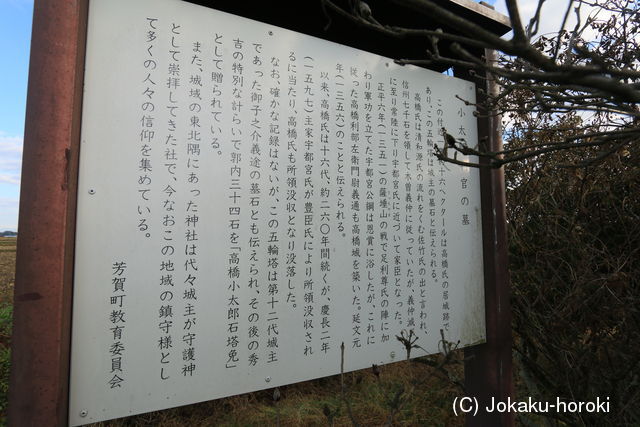 小太　　官の墓
この付近　　十六ヘクタールは高橋氏の居城跡で
あり、この五輪塔は城主の墓石と伝えられる。
高橋氏は清和源氏の流れをくむ佐竹氏の出と言われ、
信州七千石を領して木曽義仲に従っていたが、義仲滅
に至り常陸に下り宇都宮氏に近づいて家臣となった。
正平六年（一三五一）の薩埵山の戦で足利尊氏の陣に加
わり軍功を立てた宇都宮公綱は恩賞に浴したが、これに
従った高橋刑部左衛門尉義通も高橋城を築いた。延文元
年（一三五六）のことと伝えられる。
以来、高橋氏は十六代、約二六〇年間続くが、慶長二年
（一五九七）主家宇都宮氏が豊臣氏により所領没収され
るに当たり、高橋氏も所領没収となり没落した。
なお、確かな記録はないが、この五輪塔は第十二代城主
であった御子之介義途の墓石とも伝えられ、その後の秀
吉の特別な計らいで郭内三十四石を「高橋小太郎石塔免」
として贈られている。
また、城域の東北隅にあった神社は代々城主が守護神
として崇拝してきた社で、今なおこの地域の鎮守様とし
て多くの人々の信仰を集めている。
芳賀町教育委員会
(C) Jokaku-horoki